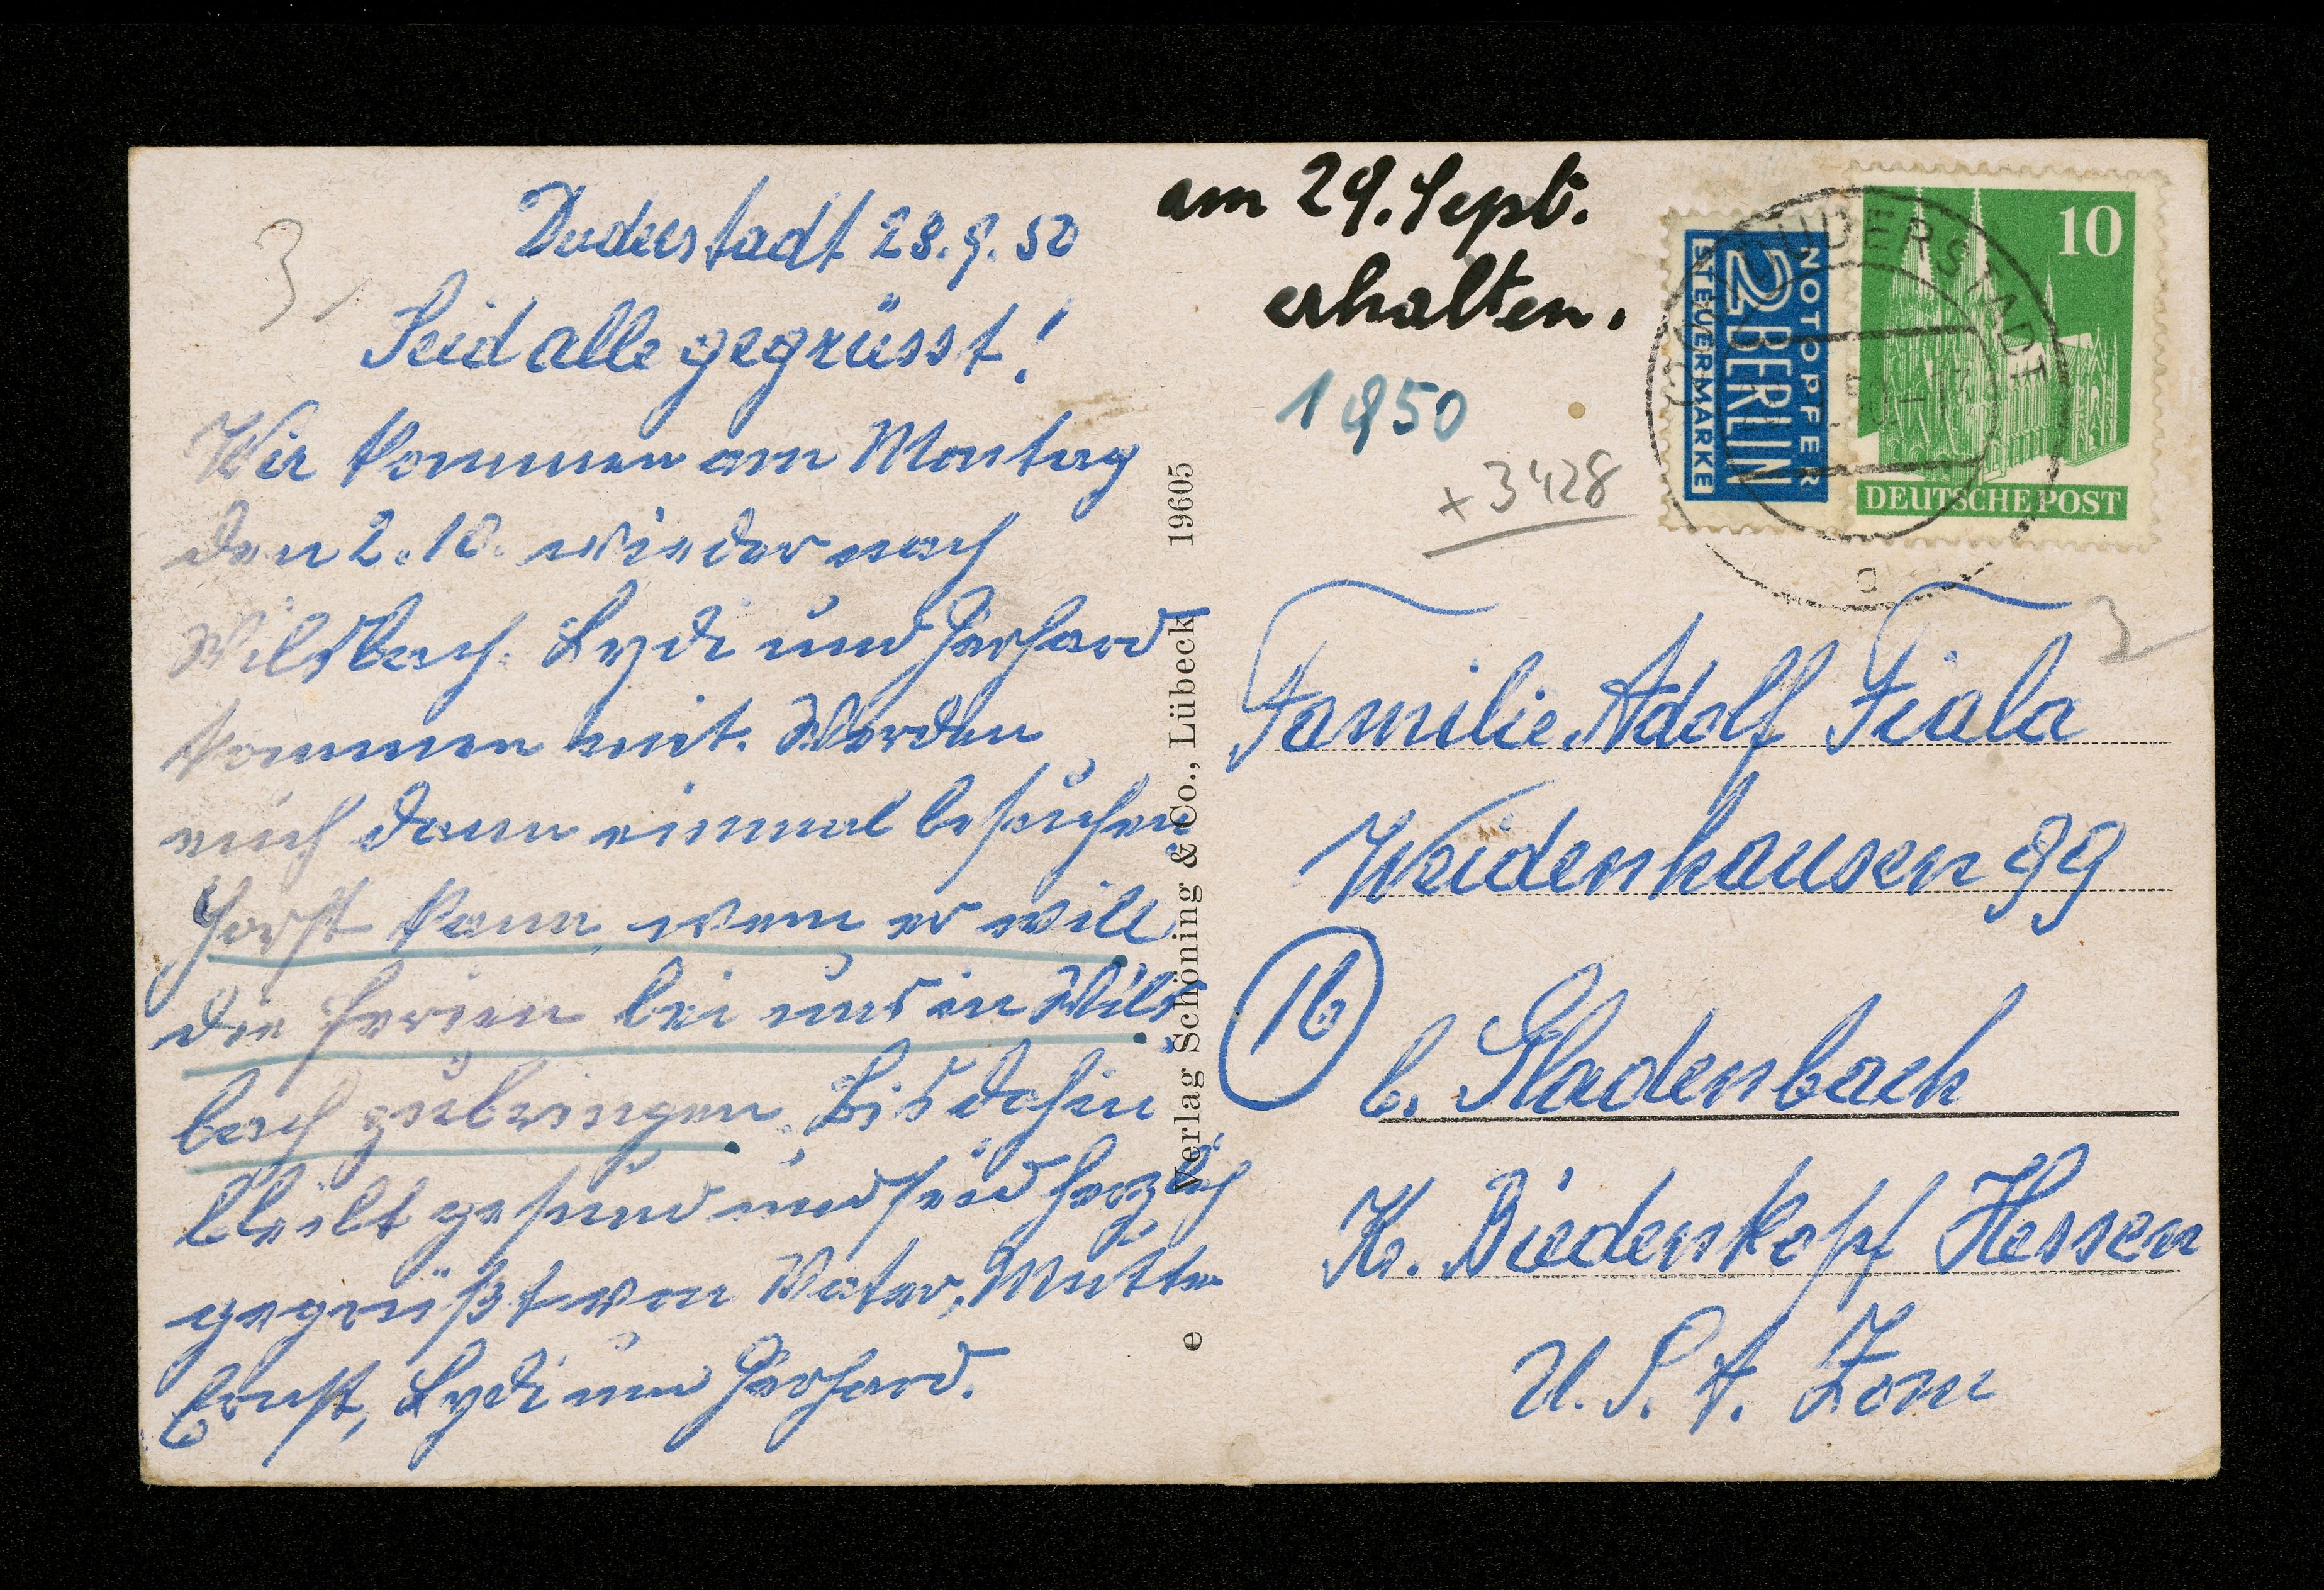 3.
Duderstadt 28.9.50
Seid alle gegrüsst!
Wir kommen am Montag
den 2.10. wieder nach
Wilsbach. Lydi und Gerhard
kommen mit. Werden
euch dann einmal besuchen.
Horst kann, wenn er will
die Ferien bei uns in Wils-
bach zubringen. Bis dahin
bleibt gesund und seid herzlich
gegrüßt von Vater, Mutter
Ernst, Lydi und Gerhard.
e Verlag Schöning & Co., Lübeck 19605
am 29. Sept.
erhalten.
1950
x 3428
NOTOPFER
2 BERLIN
STEUERMARKE
10
DEUTSCHE POST
DUDERSTADT
Familie Adolf Fiala
Weidenhausen 99
16
b. Gladenbach
Kr. Biedenkopf Hessen
U.S.A. Zone